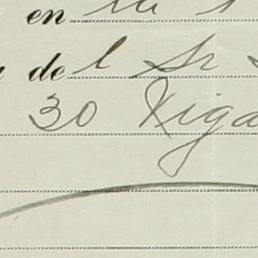 en la
de l Sr
30 Xiga